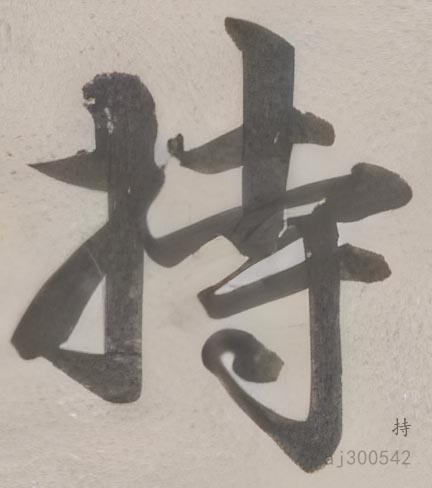 持
持
aj300542